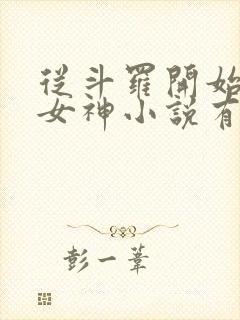 從斗羅開始
女神小說有
彭一葦